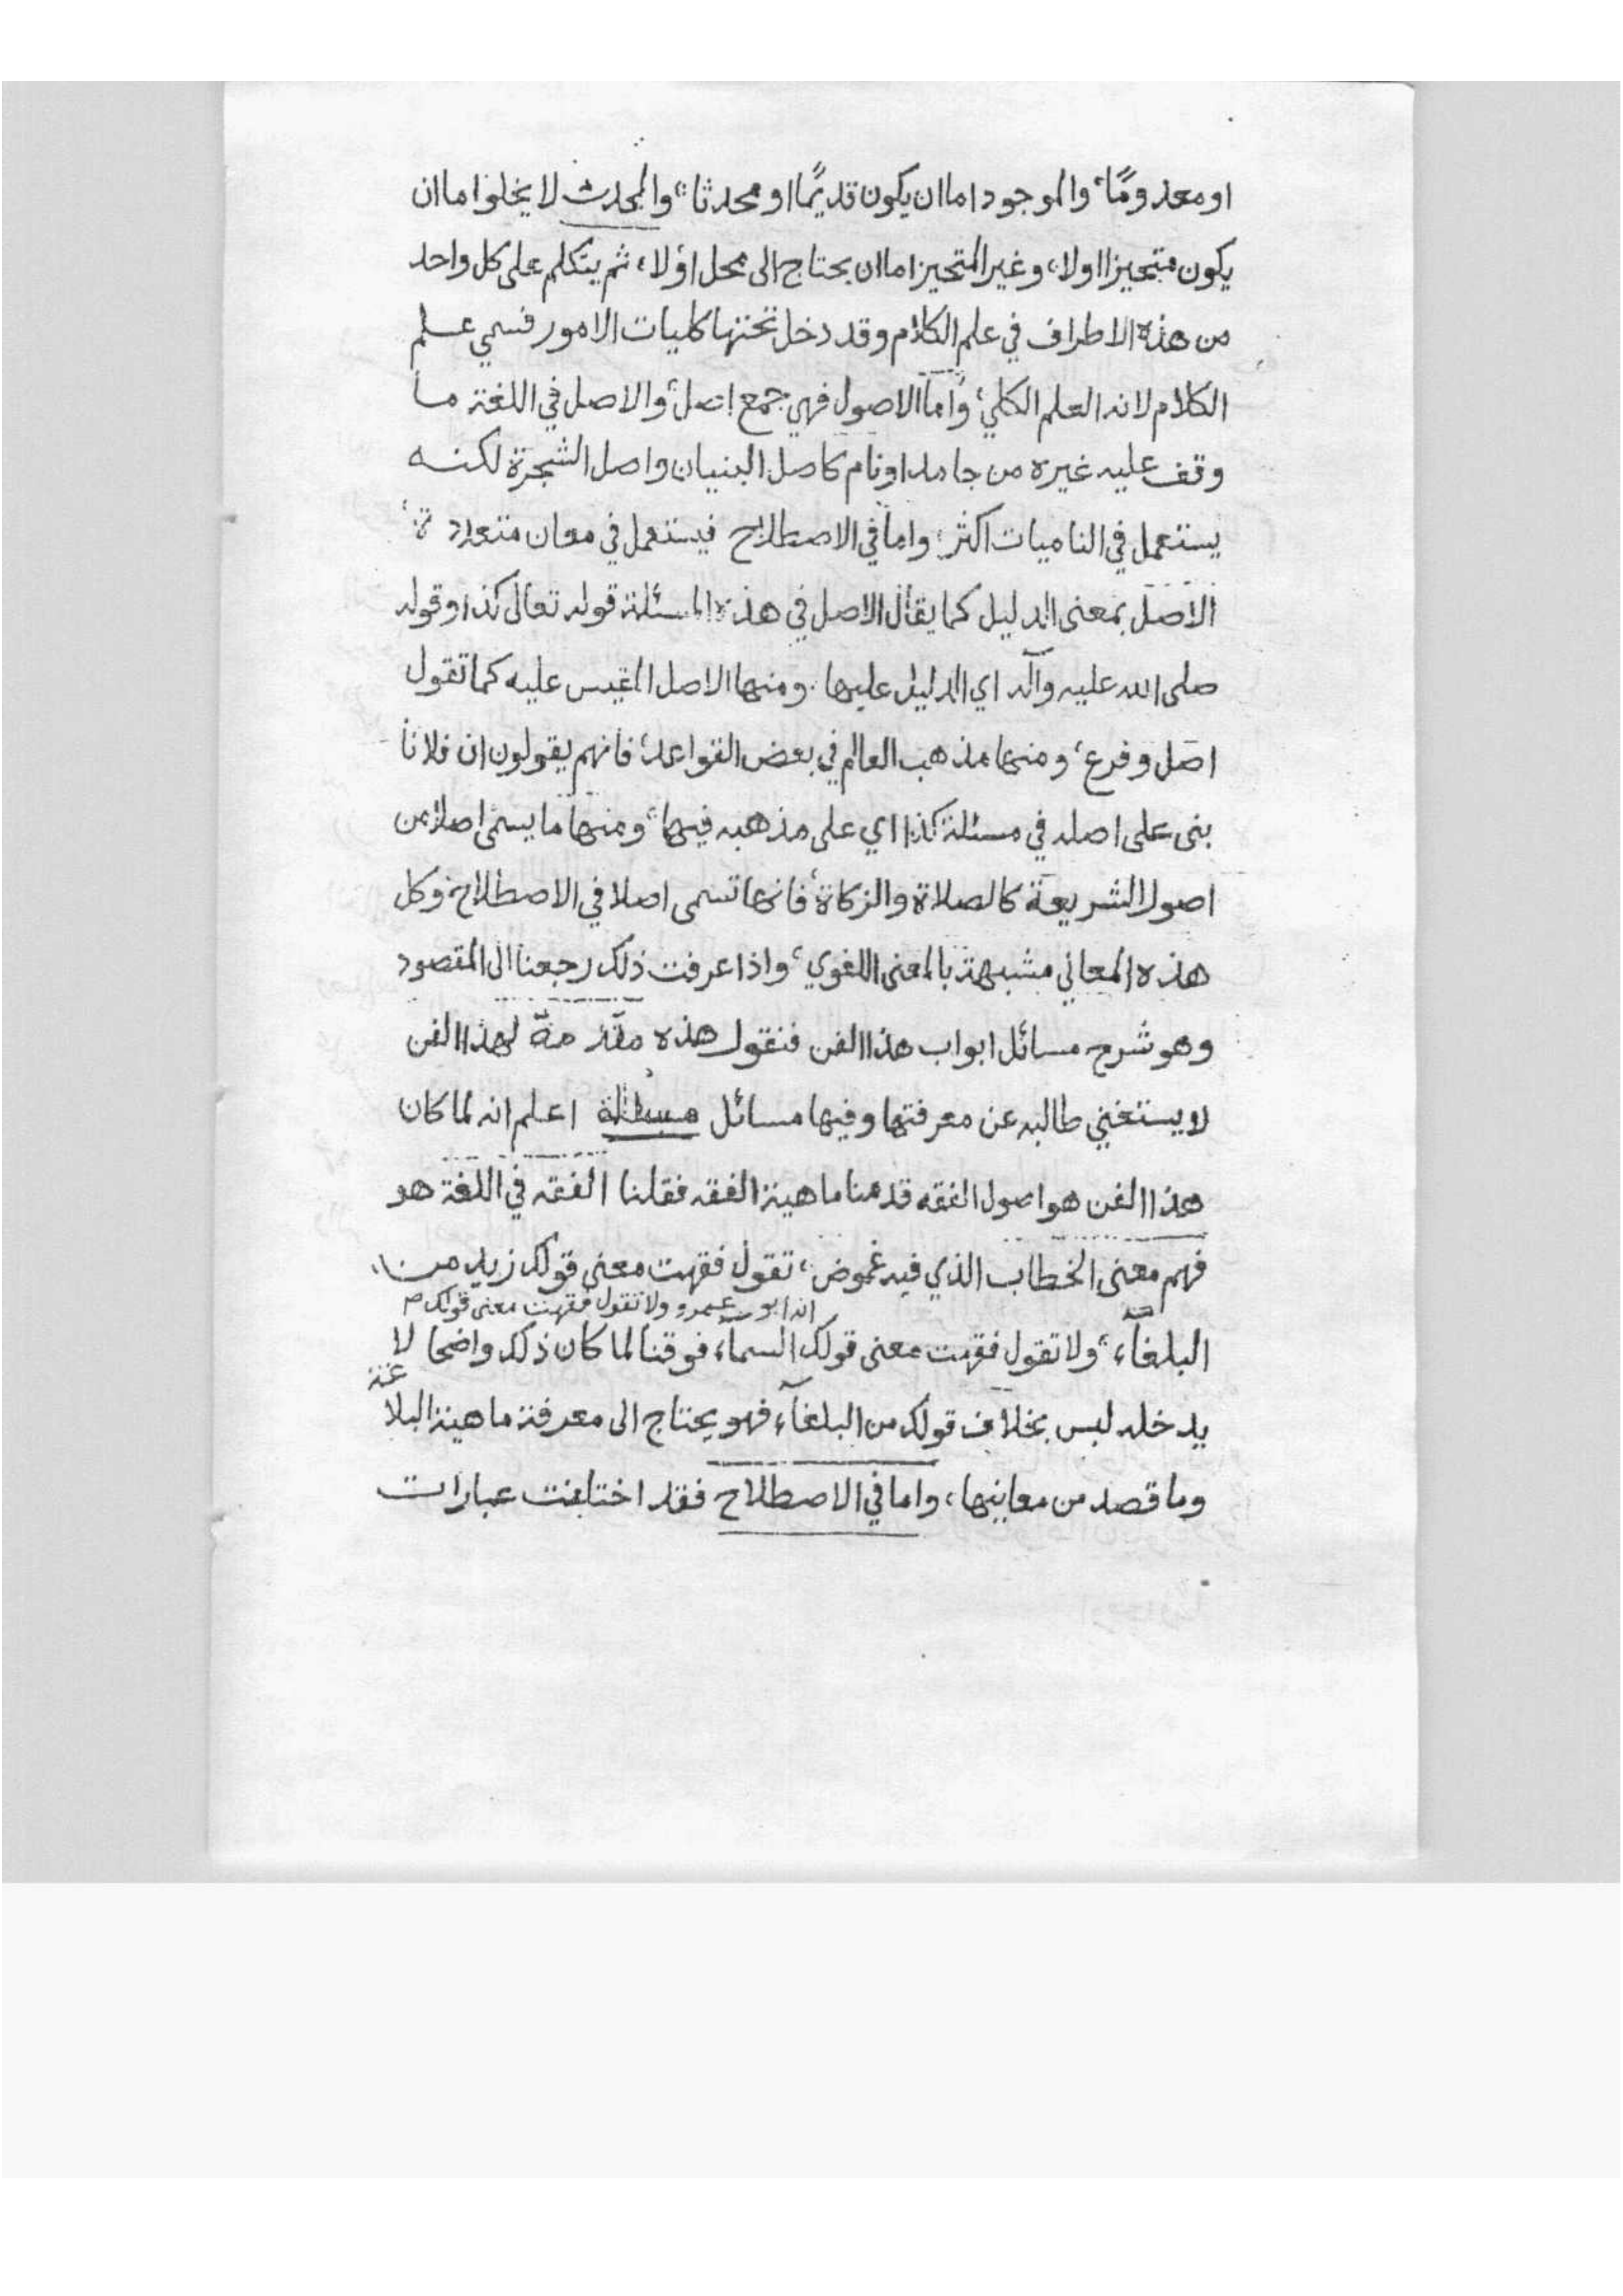 او معدومًا، والموجود اما ان يكون قديمًا او محدثا، والمحدث لا يخلوا اما ان
يكون متحيزا اولا، وغير المتحيز اما ان يحتاج الى محل اولا، ثم يتكلم على كل واحد
من هذه الاطراف في علم الكلام وقد دخل تحتها كليات الامور فسمي علم
الكلام لانه العلم الكلي، واما الاصول فهي جمع اصل، والاصل في اللغة ما
وقف عليه غيره من جامد او نام كاصل البنيان واصل الشجرة لكنه
يستعمل في الناميات اكثر، واما في الاصطلاح فيستعمل في معان متعددة،
الاصل بمعنى الدليل كما يقال الاصل في هذه المسئلة قوله تعالى كذا وقوله
صلى الله عليه وآله اي الدليل عليها. ومنها الاصل المقيس عليه كما تقول
اصل وفرع، ومنها مذهب العالم في بعض القواعد، فانهم يقولون ان فلانا
بنى على اصله في مسئلة كذا اي على مذهبه فيها، ومنها ما يسمى اصلا من
اصول الشريعة كالصلاة والزكاة، فانها تسمى اصلا في الاصطلاح، وكل
هذه المعاني مشبهة بالمعنى اللغوي، واذا عرفت ذلك رجعنا الى المقصود
وهو شرح مسائل ابواب هذا الفن فنقول هذه مقدمة لهذا الفن
لا يستغني طالبه عن معرفتها وفيها مسائل مسئلة اعلم انه لما كان
هذا الفن هو اصول الفقه قدمنا ماهية الفقه فقلنا الفقه في اللغة هو
فهم معنى الخطاب الذي فيه غموض، تقول فقهت معنى قولك زيد من
انه ابو عمرو ولا تقول فقهت معنى قولك م
البلغآء، ولا تقول فقهت معنى قولك السمآء فوقنا لما كان ذلك واضحا لا
يدخله لبس بخلاف قولك من البلغآء فهو يحتاج الى معرفة ماهية البلاغة
وما قصد من معانيها، واما في الاصطلاح فقد اختلفت عبارات